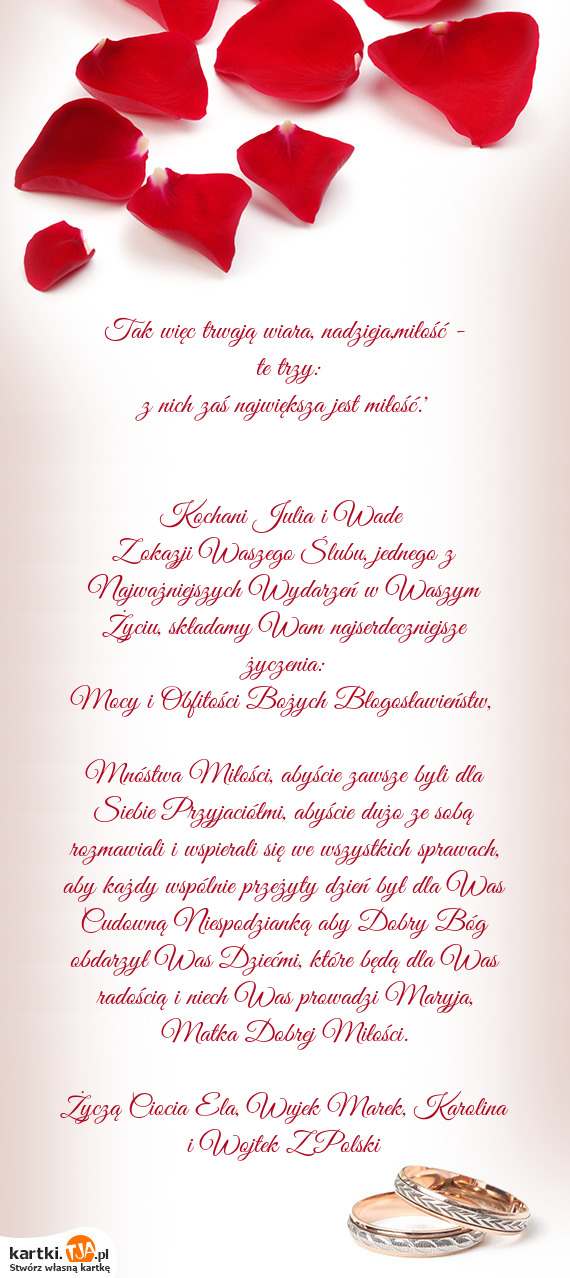 Tak więc trwają wiara, nadzieja,miłość -
te trzy:
z nich zaś największa jest miłość.’
Kochani Julia i Wade
Zokazji Waszego Ślubu, jednego z
Najważniejszych Wydarzeń w Waszym
Życiu, składamy Wam najserdeczniejsze
życzenia:
Mocy i Obfitości Bożych Błogosławieństw,
Mnóstwa Miłości, abyście zawsze byli dla
Siebie Przyjaciółmi, abyście dużo ze sobą
rozmawiali i wspierali się we wszystkich sprawach,
aby każdy wspólnie przeżyty dzień był dla Was
Cudowną Niespodzianką aby Dobry Bóg
obdarzył Was Dziećmi, które będą dla Was
radością i niech Was prowadzi Maryja,
Matka Dobrej Miłości.
Życzą Ciocia Ela, Wujek Marek, Karolina
i Wojtek ZPolski
kartki.TJA.pl
Stwórz własną kartkę